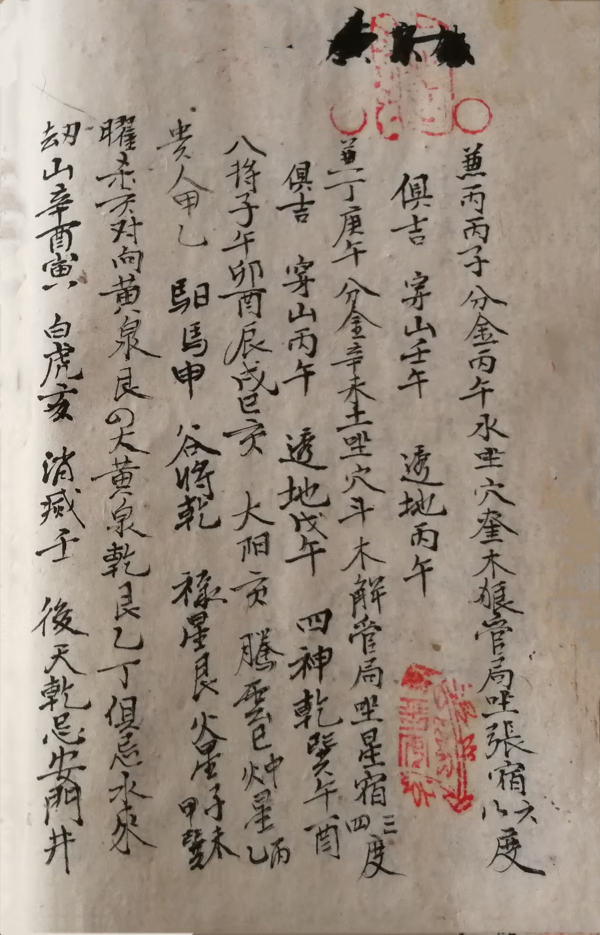 兼丙丙子分金丙午水坐穴奎木狼管局坐張宿六八度
俱吉 穿山壬午 透地丙午
兼丁庚午分金辛未土坐穴斗木解管局坐星宿三四度
俱吉 穿山丙午 透地戊午 四神乾巽午酉
八將子午卯酉辰戌巳亥 太阳亥 騰雲巳 星丙乙
贵人甲乙 馹馬申 谷將乾 祿星艮 火星子未甲
曜杀 对向黄泉艮 大黄泉乾艮乙丁俱忌水來
劫山辛酉寅 白虎亥 消滅壬 後天乾忌安門井